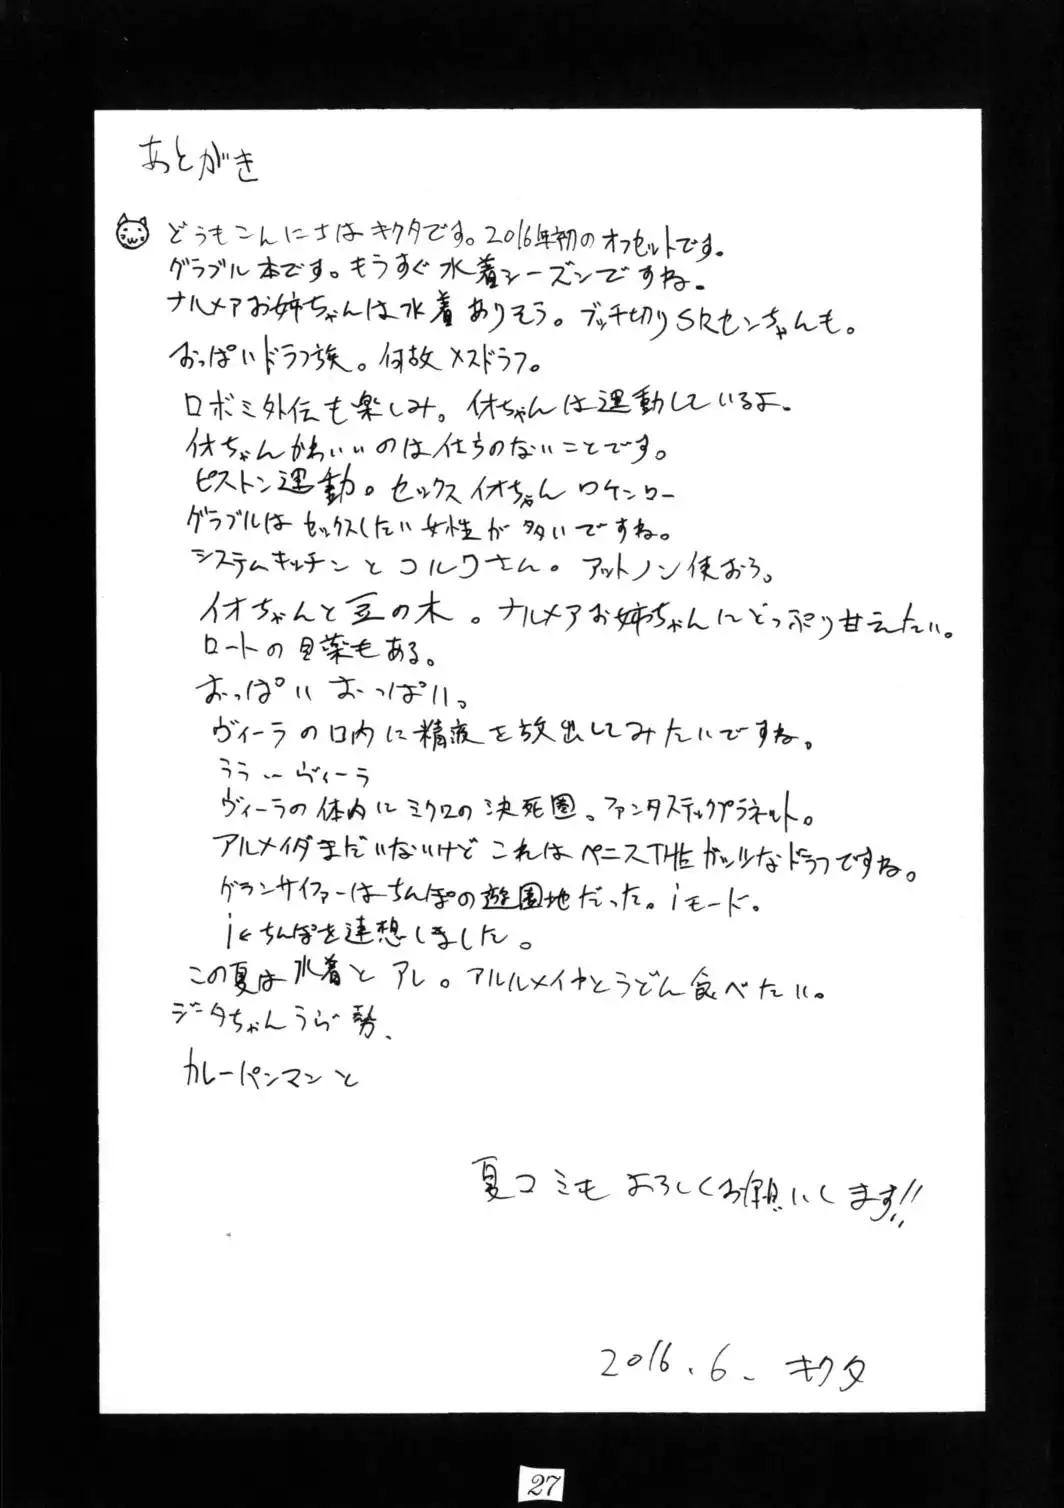 あとがき
どうもこんにちはキクタです。2016年初のオフセットです。
グラブル本です。もうすぐ水着シーズンですね。
ナルメアお姉ちゃんは水着ありそう。ブッチ切りSRセンちゃんも。
おっぱいドラフ族。何故メスドラフ。
ロボミ外伝も楽しみ。イオちゃんは運動しているよ。
イオちゃんかわいいのは仕方のないことです。
グラブルはセックスしたい女性が多いですね。
システムキッチンとコルワさん。アットノン使おう。
イオちゃんと豆の木。ナルメアお姉ちゃんにどっぷり甘えたい。
ロートの目薬もある。
おっぱいおっぱい。
ヴィーラの口内に精液を放出してみたいですね。
ララ…ヴィーラ
ヴィーラの体内にミクロの決死圏。ファンタスティックプラネット。
アルメイダまだいないけどこれはペニスTHEガッツなドラフですね。
グランサイファーはちんぽの遊園地だった。iモード。
i←ちんぽを連想しました。
この夏は水着とアレ。アルルメイヤとうどん食べたい。
ジータちゃん 勢、
カレーパンマンと
夏コミもよろしくお願いします!!
2016.6. キクタ
27